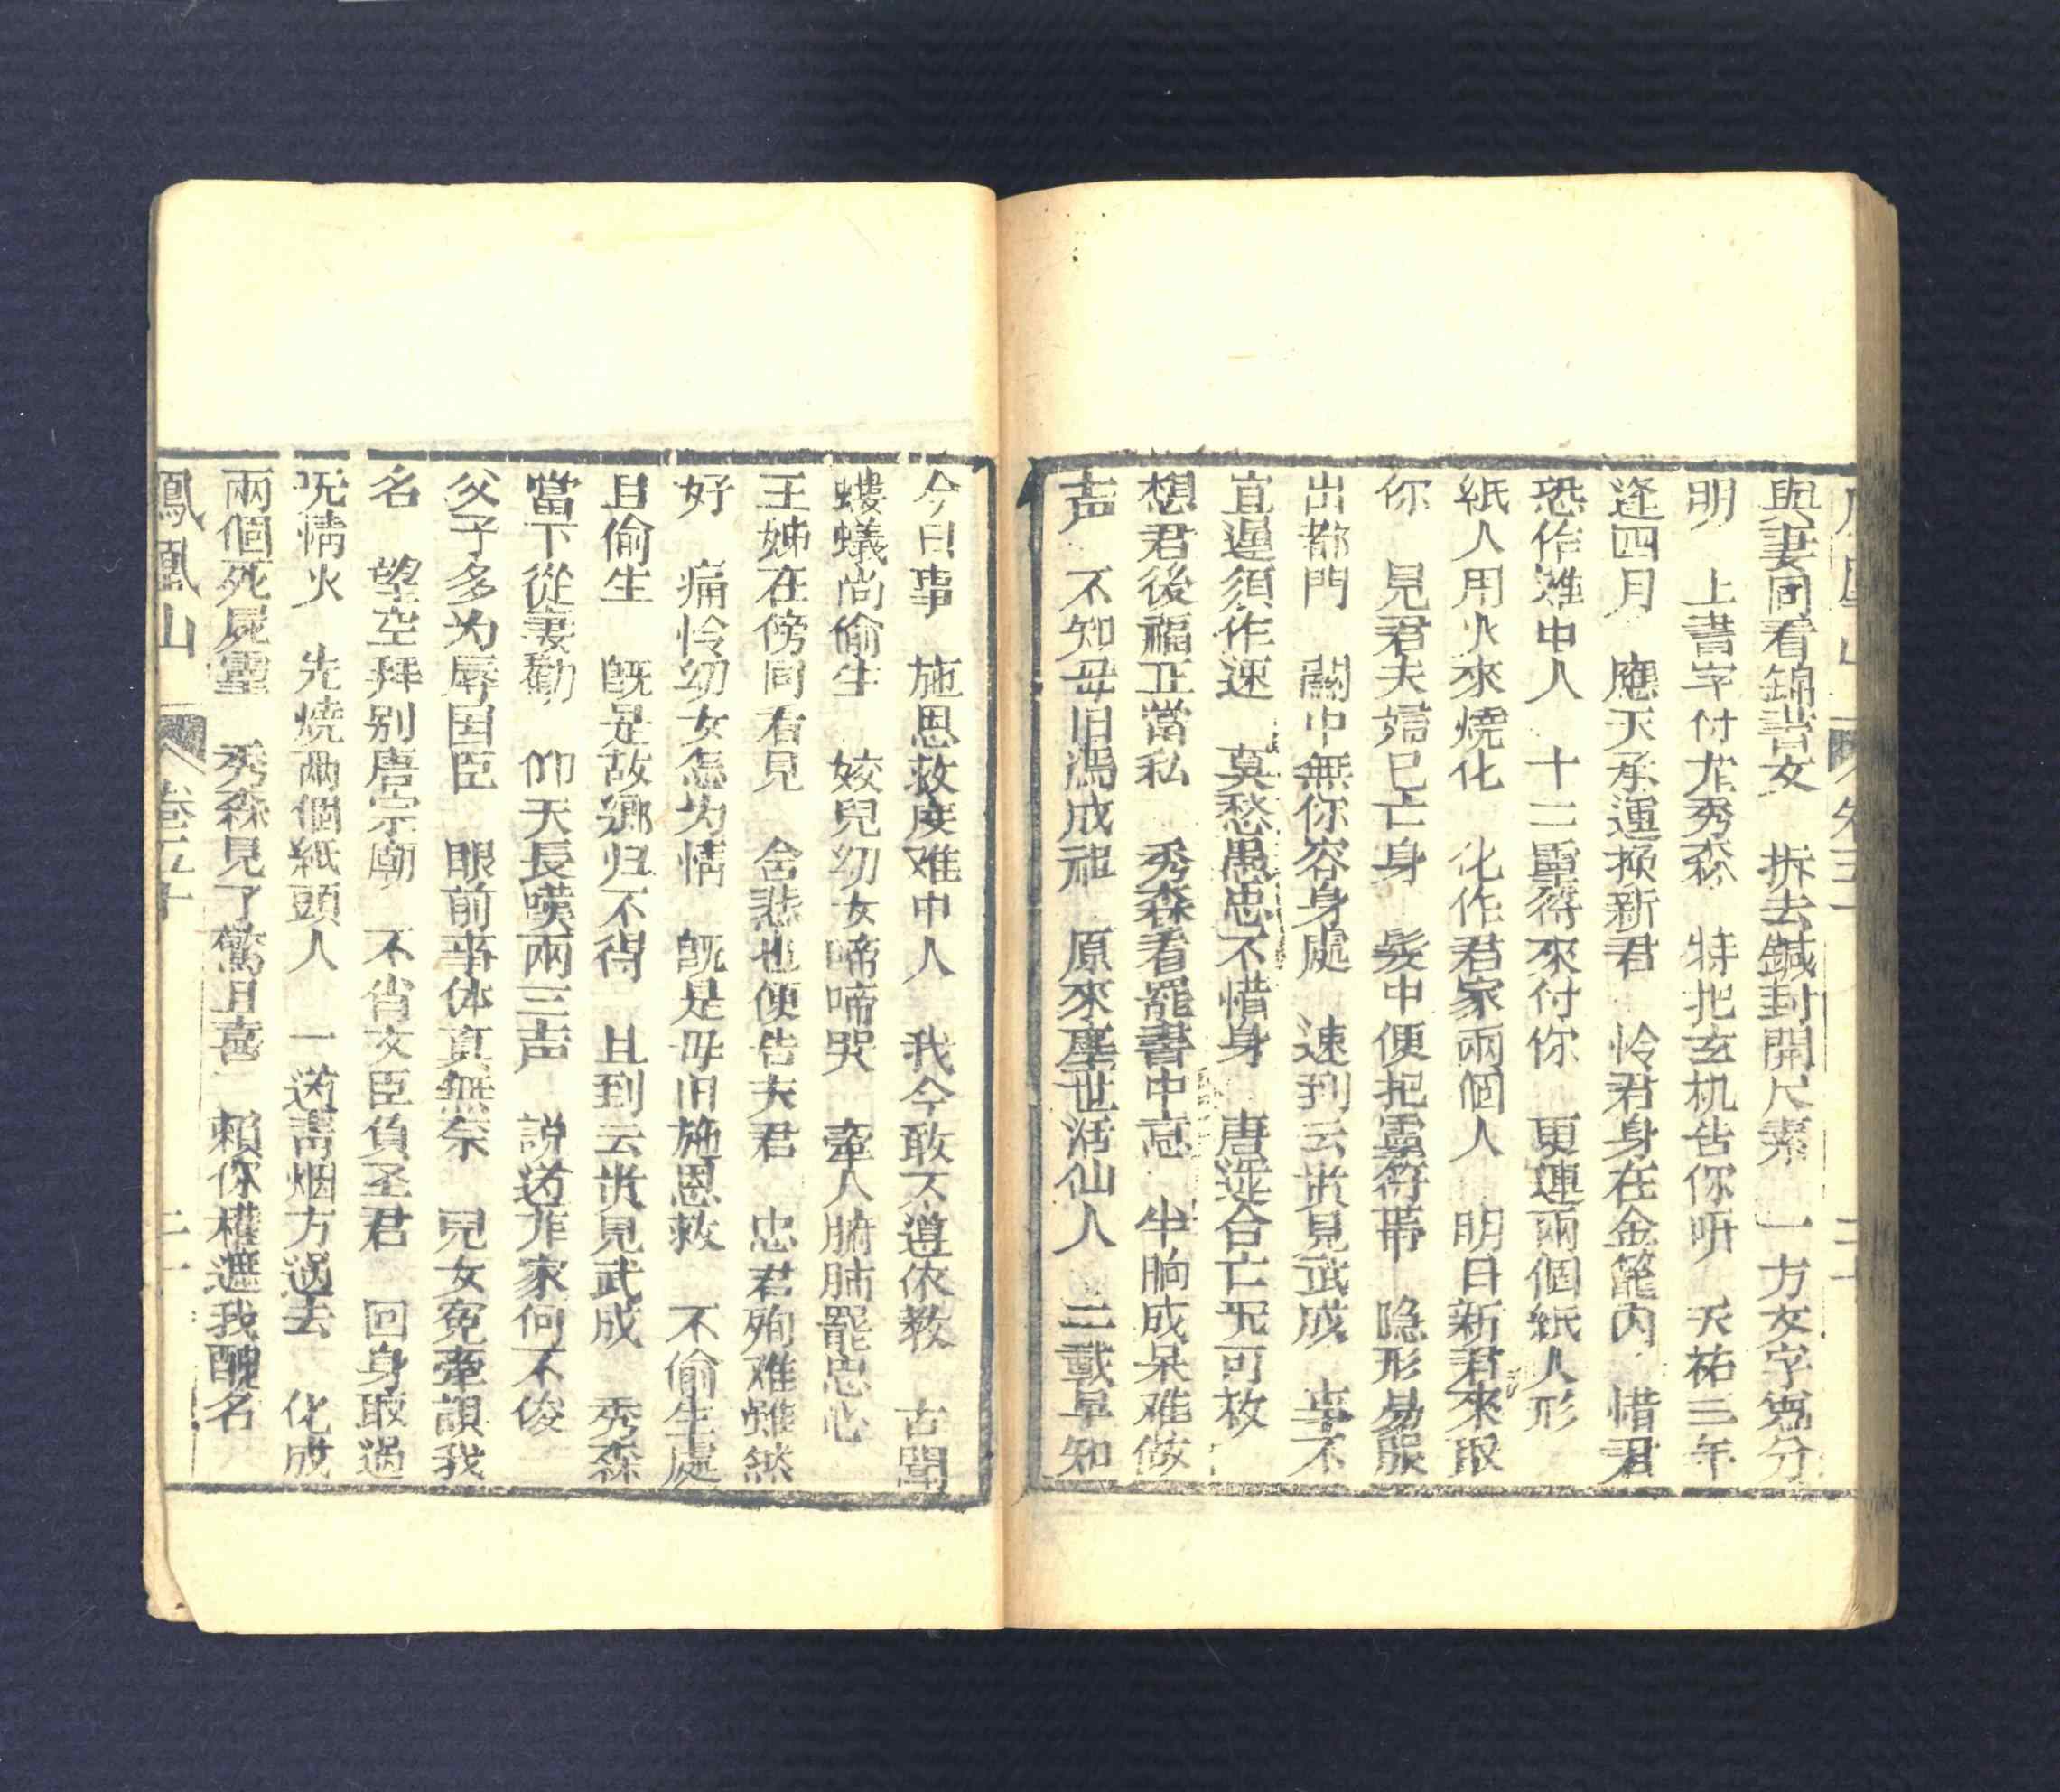 與妻同看錦書文　拆去鍼封開尺素　一方文字寫分
明　上書字付尤秀森　特把玄机告你听　天祐三年
逢四月　應天承運换新君　怜君身在金籠内　惜君
恐作难中人　十二靈符來付你　更連兩個紙人形
紙人用火來燒化　化作君家兩個人　明日新君來眼
你　見君夫婦已亡身　髮中便把靈符帶　隐形易服
出都門　關中無你容身處　速到云貴見武成　事不
宜遲須作速　莫愁愚忠不惜身　唐运合亡无可救
想君後福正當私　秀森看罷書中意　半晌成呆难做
声　不知毋旧為成祖　原來塵世活仙人　三載早知
今日事　施恩救度难中人　我今敢不遵依教　古聞
螻蟻尚偷生　姣兒幼女啼啼哭　牽人腑肺罷忠心
王姊在傍同看見　含悲也便告夫君　忠君殉难雖然
好　痛怜幼女怎为情　既是毋旧施恩救　不偷生處
且偷生　既是故鄉归不得　且到云貴見武成　秀森
當下從妻勸　仰天長嘆兩三声　説道尤家何不俊
父子多为辱国臣　眼前事体真無奈　兒女冤牽誤我
名　望空拜别唐宗廟　不肖文臣負圣君　回身取過
无情火　先燒兩個紙頭人　一道青烟方過去　化成
兩個死屍靈　秀森見了驚且喜　賴你權遮我醜名
鳳凰山　卷五十　二十一